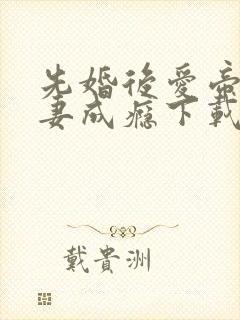 先婚後愛帝
妻成癮下載
戴貴洲